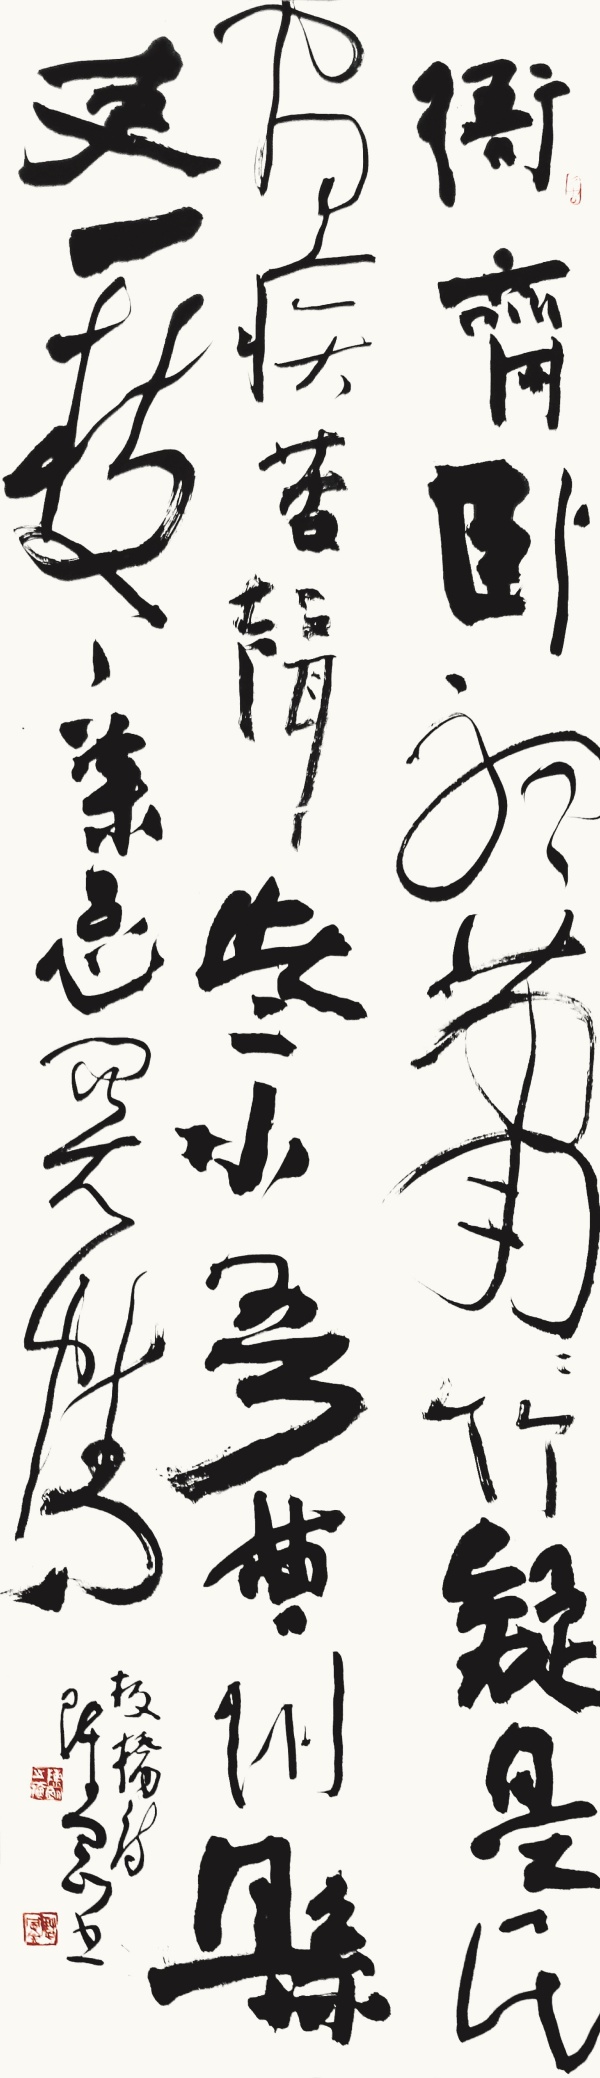 衙齋卧聽蕭〻竹疑是民
間疾苦聲些小吾曹州縣
吏一枝一葉總關情
板橋詩
陳